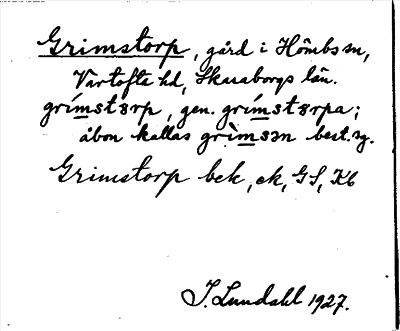 Grimstorp, gård i Hömb sn,
Vartofta hd, Skaraborgs län.
grímstɜrp, gen. grímstɜrpa;
åbon kallas grìmsən best. sg.
Grimstorp bek, ek, GS, Kb
I. Lundahl 1927.